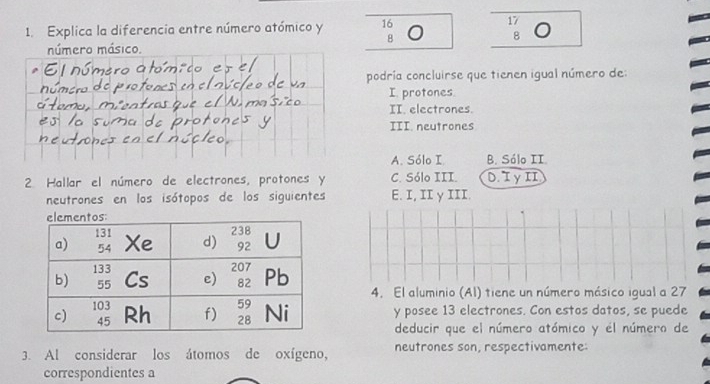 1. Explica la diferencia entre número atómico y
número másico.
• El número atómico es el
número de protones en el núcleo de un
átomo, mientras que el N. masico
es la suma de protones y
neutrones en el núcleo.
2. Hallar el número de electrones, protones y
neutrones en los isótopos de los siguientes
elementos:
a) 131 54 Xe d) 238 92 U
b) 133 55 Cs e) 207 82 Pb
c) 103 45 Rh f) 59 28 Ni
3. Al considerar los átomos de oxígeno,
correspondientes a
16 8 O 17 8 O
podría concluirse que tienen igual número de:
I. protones.
II. electrones.
III. neutrones
A. Sólo I. B. Sólo II.
C. Sólo III. D. I y II.
E. I, II y III.
4. El aluminio (Al) tiene un número másico igual a 27
y posee 13 electrones. Con estos datos, se puede
deducir que el número atómico y él número de
neutrones son, respectivamente: